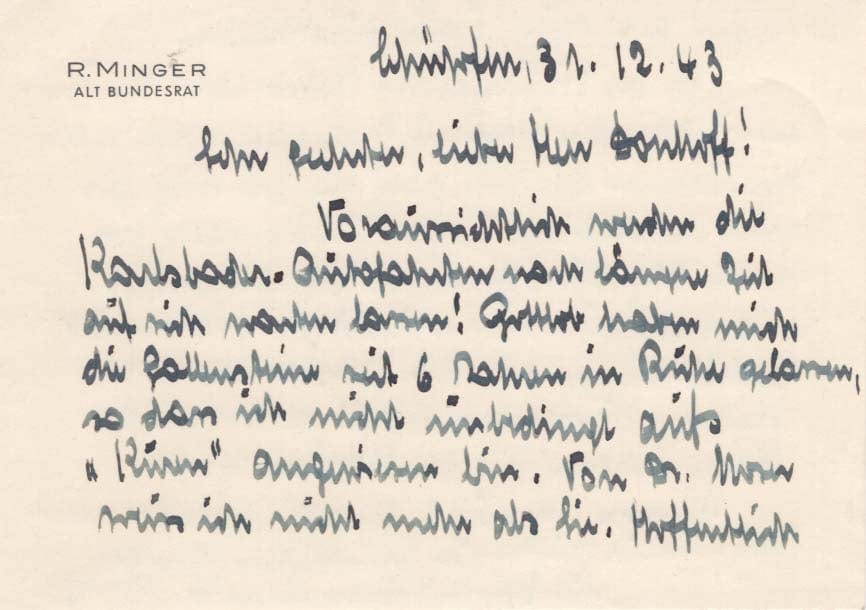 R. MINGER
ALT BUNDESRAT
Schüpfen, 31. 12. 43
Sehr geehrter, lieber Herr Bonhoff!
Voraussichtlich werden die
Karlsbader-Autofahrten noch längere Zeit
auf sich warten lassen! Gottlob haben mich
die Gallensteine seit 6 Jahren in Ruhe gelassen,
so dass ich nicht unbedingt aufs
"Kuren" angewiesen bin. Von Dr.
weiss ich nicht mehr als Sie. Hoffentlich